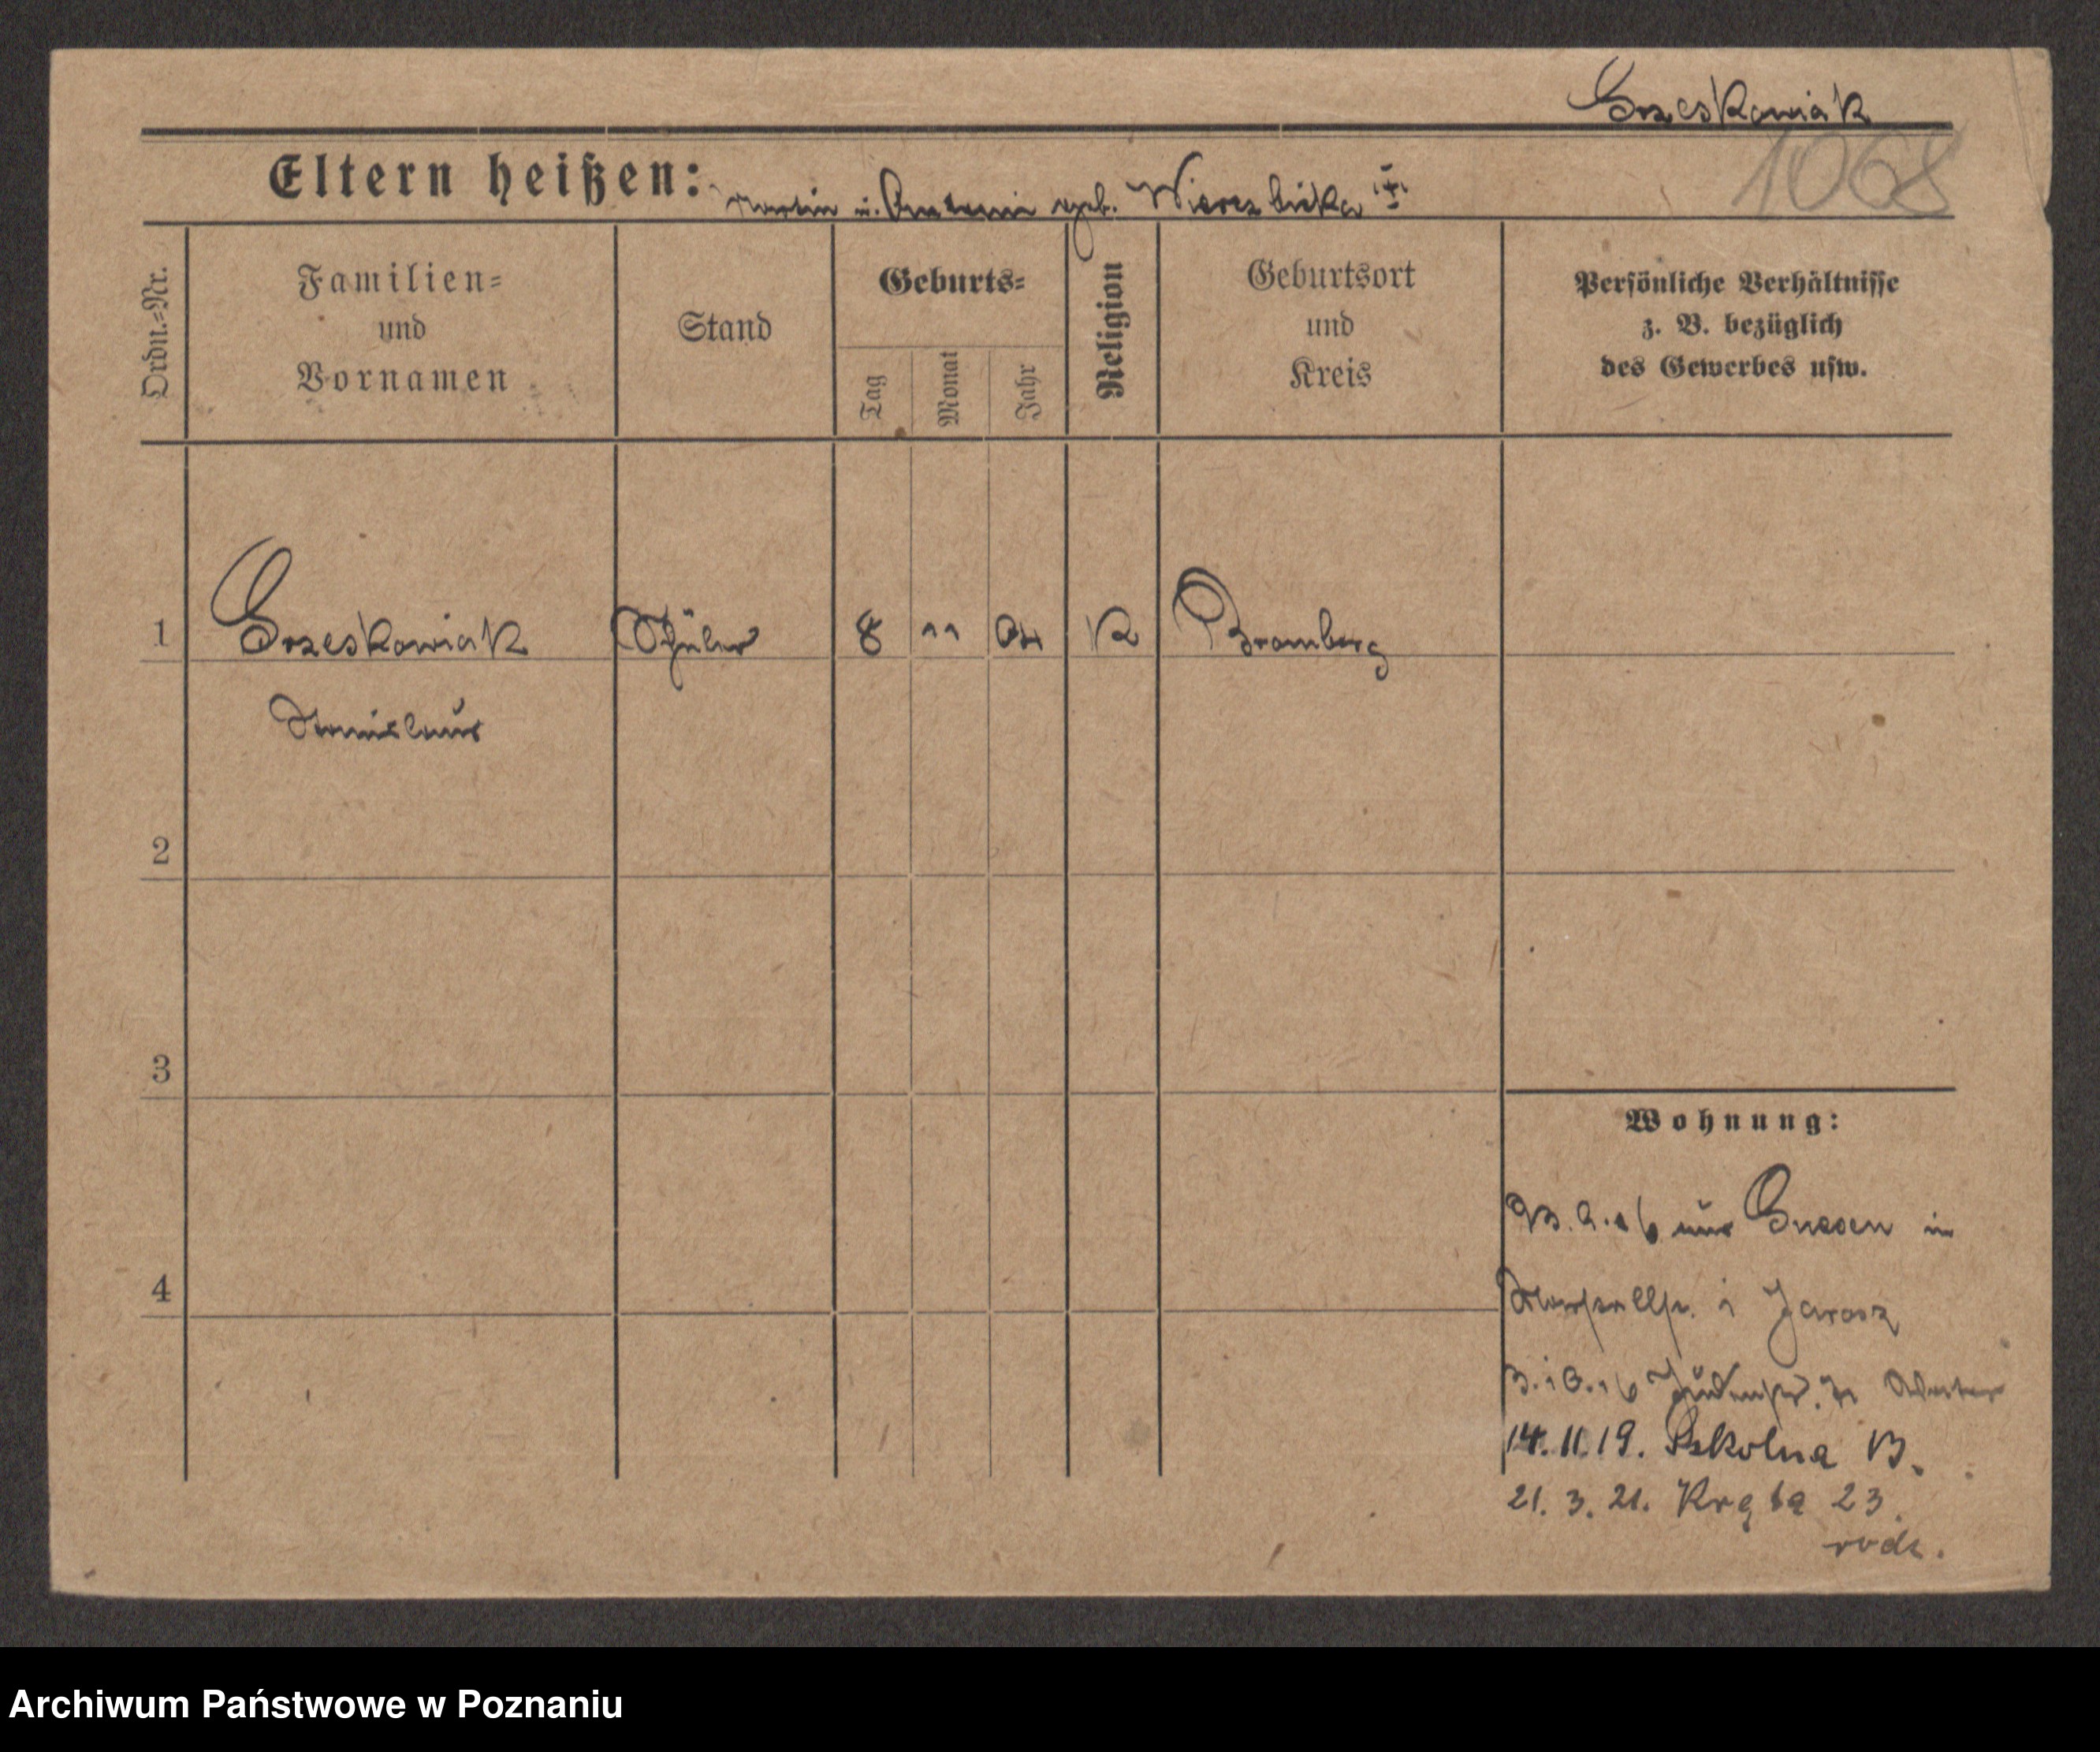 Grzeskowiak
1068
Eltern heißen: Martin u. Antonie geb. Wierzbicka
Ordn.-Nr.
Familien-
und
Vornamen
Stand
Geburts-
Tag
Monat
Jahr
Religion
Geburtsort
und
Kreis
Persönliche Verhältnisse
z. B. bezüglich
des Gewerbes usw.
1 Grzeskowiak Schüler 8 11 04 K Bromberg
Stanislaus
2
3
4
Wohnung:
aus Gnesen in
Jarosz
3.10.16
14.11.19. Szkolna 13.
21. 3. 21. Kręta 23.
rodz.
Archiwum Państwowe w Poznaniu